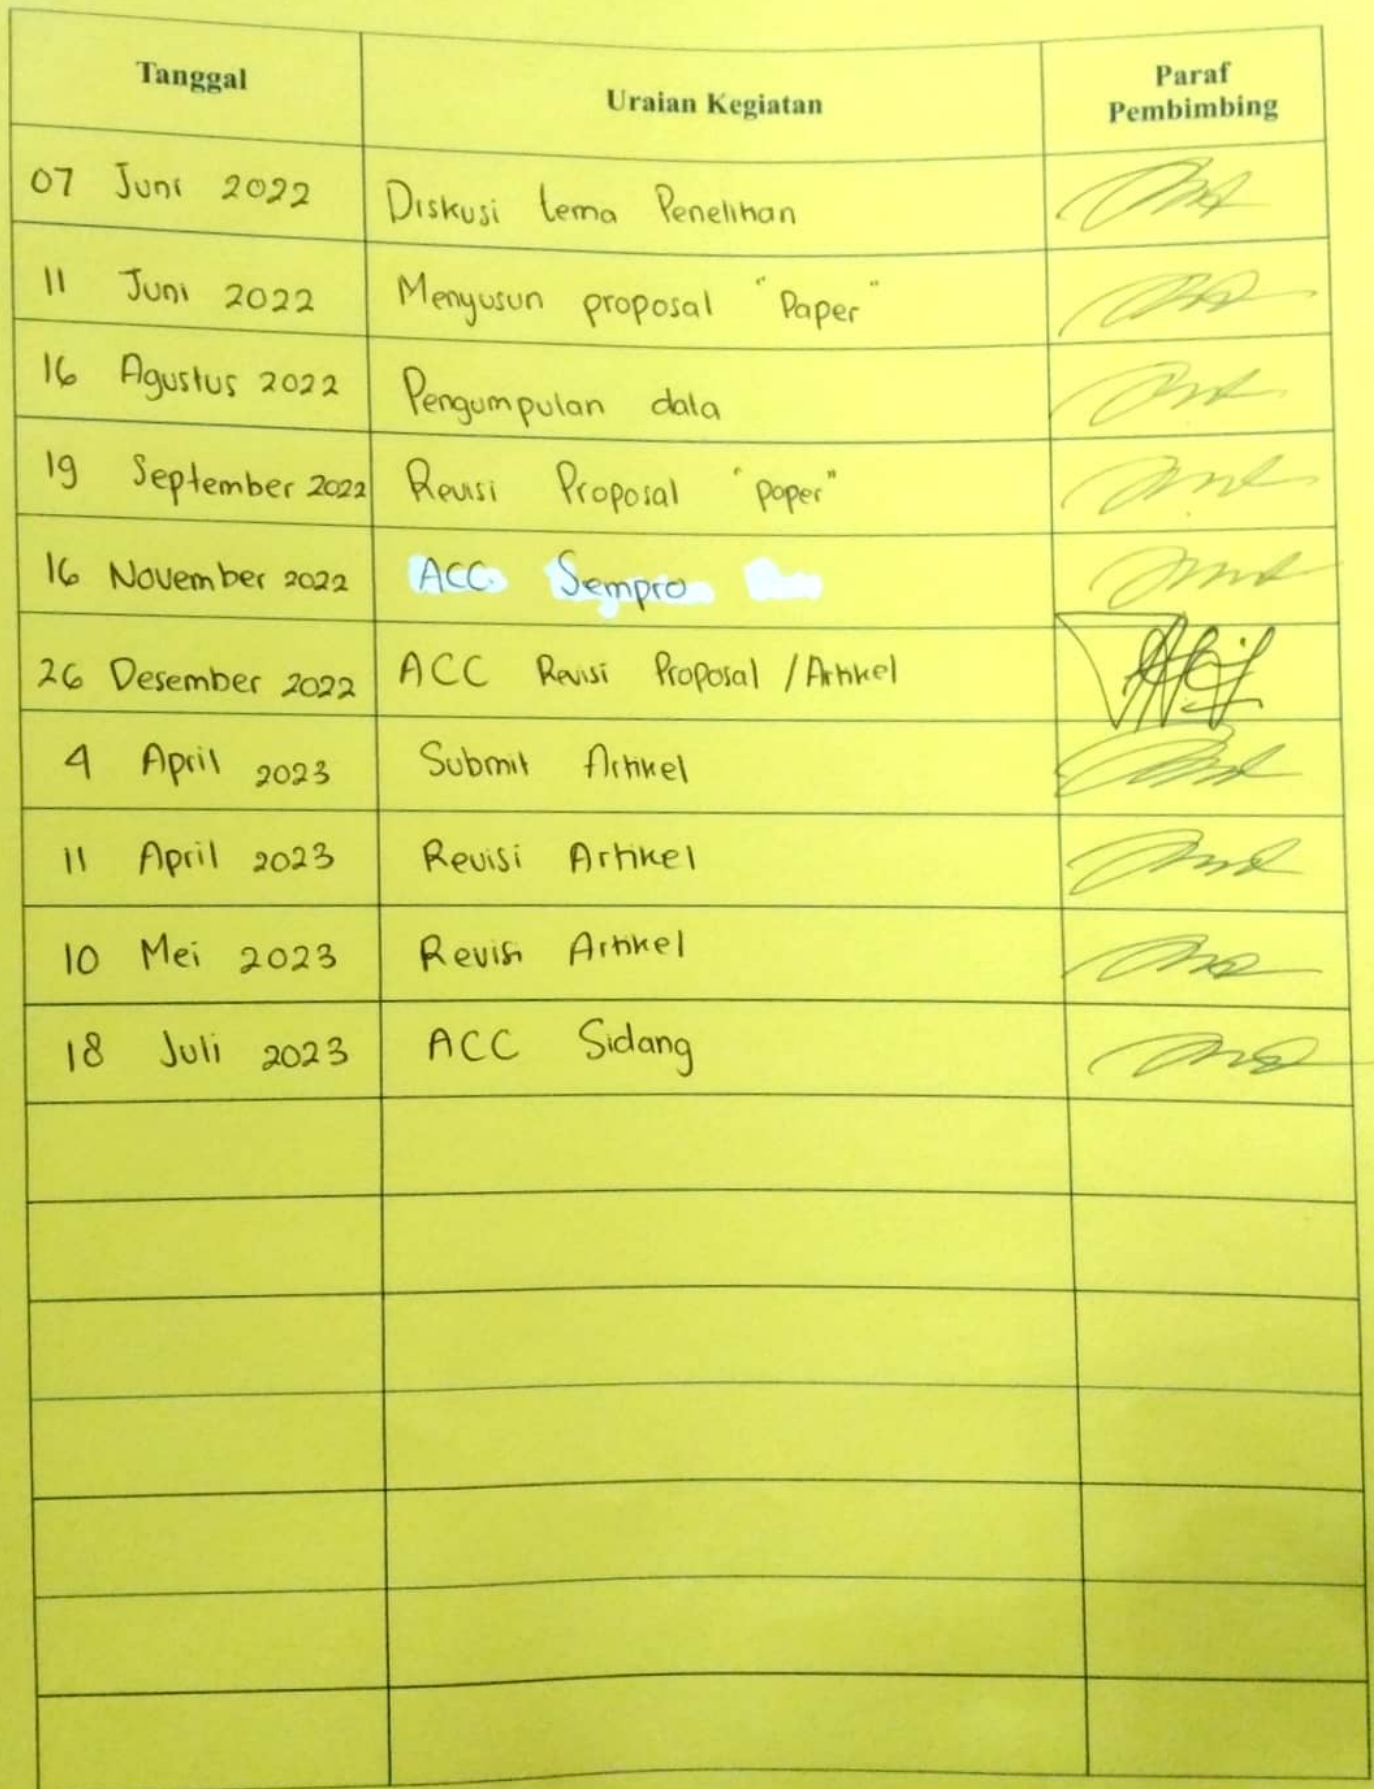 Tanggal
Uraian Kegiatan
Paraf
Pembimbing
07 Juni 2022 Diskusi tema Penelitian
11 Juni 2022 Menyusun proposal "Paper"
16 Agustus 2022 Pengumpulan data
19 September 2022 Revisi Proposal "paper"
16 November 2022 ACC Sempro
26 Desember 2022 ACC Revisi Proposal / Artikel
4 April 2023 Submit Artikel
11 April 2023 Revisi Artikel
10 Mei 2023 Revisi Artikel
18 Juli 2023 ACC Sidang